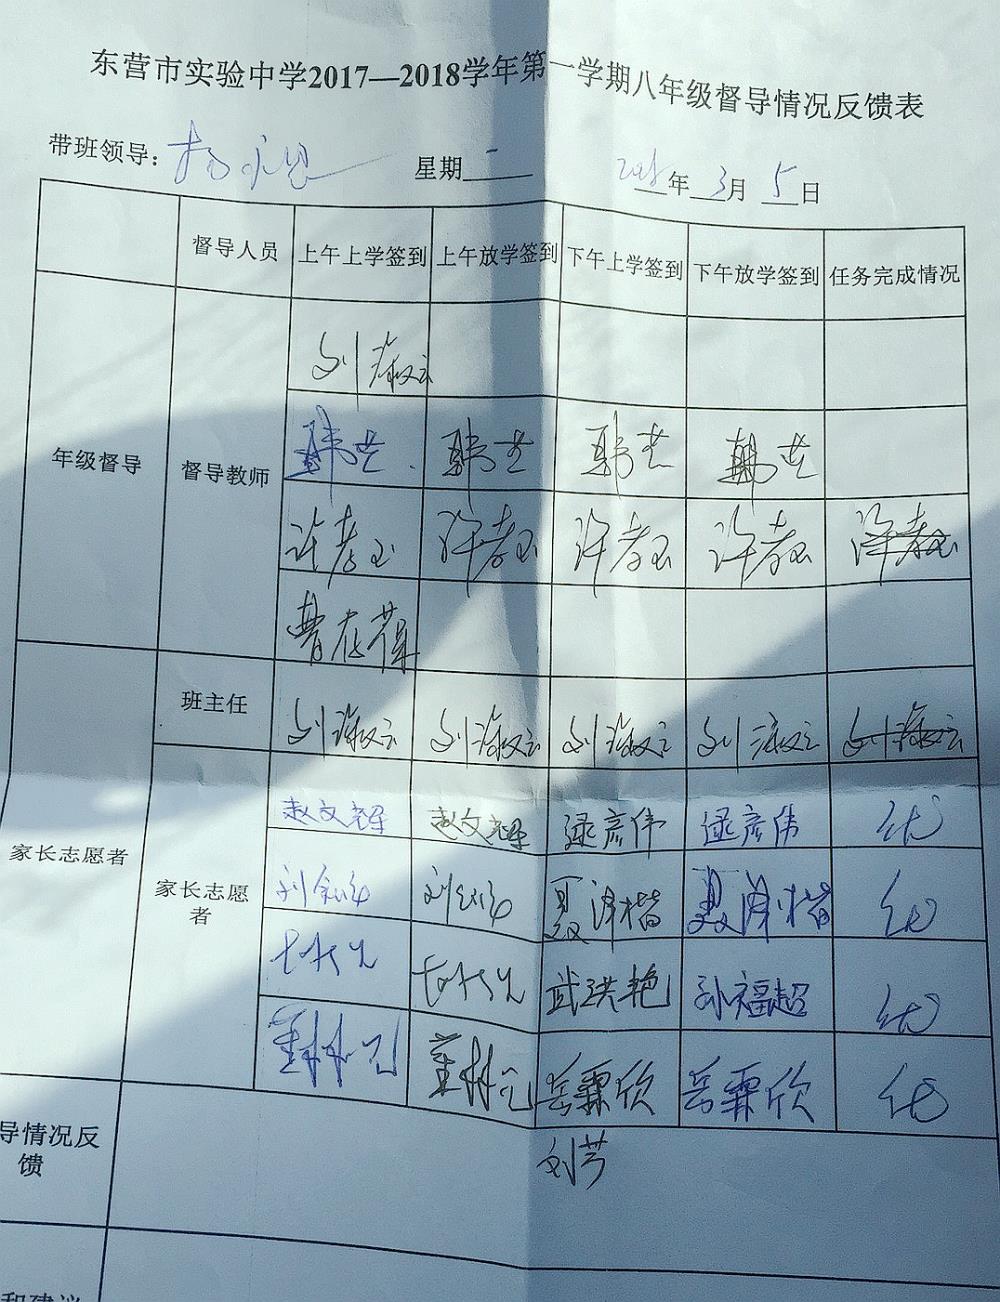 东营市实验中学2017—2018学年第一学期八年级督导情况反馈表
带班领导： 星期一 2018年3月5日
督导人员 上午上学签到 上午放学签到 下午上学签到 下午放学签到 任务完成情况
刘淑云
年级督导 督导教师 韩芸 韩芸 韩芸 韩芸
许孝玉 许孝玉 许孝玉 许孝玉 许孝玉
曹在葆
班主任 刘淑云 刘淑云 刘淑云 刘淑云 刘淑云
家长志愿者 家长志愿者 赵文 赵文 逯彦伟 逯彦伟 优
刘 刘 聂泽楷 聂泽楷 优
武洪艳 孙福超 优
董林 董林 岳霖欣 岳霖欣 优
导情况反馈
刘芳
和建议